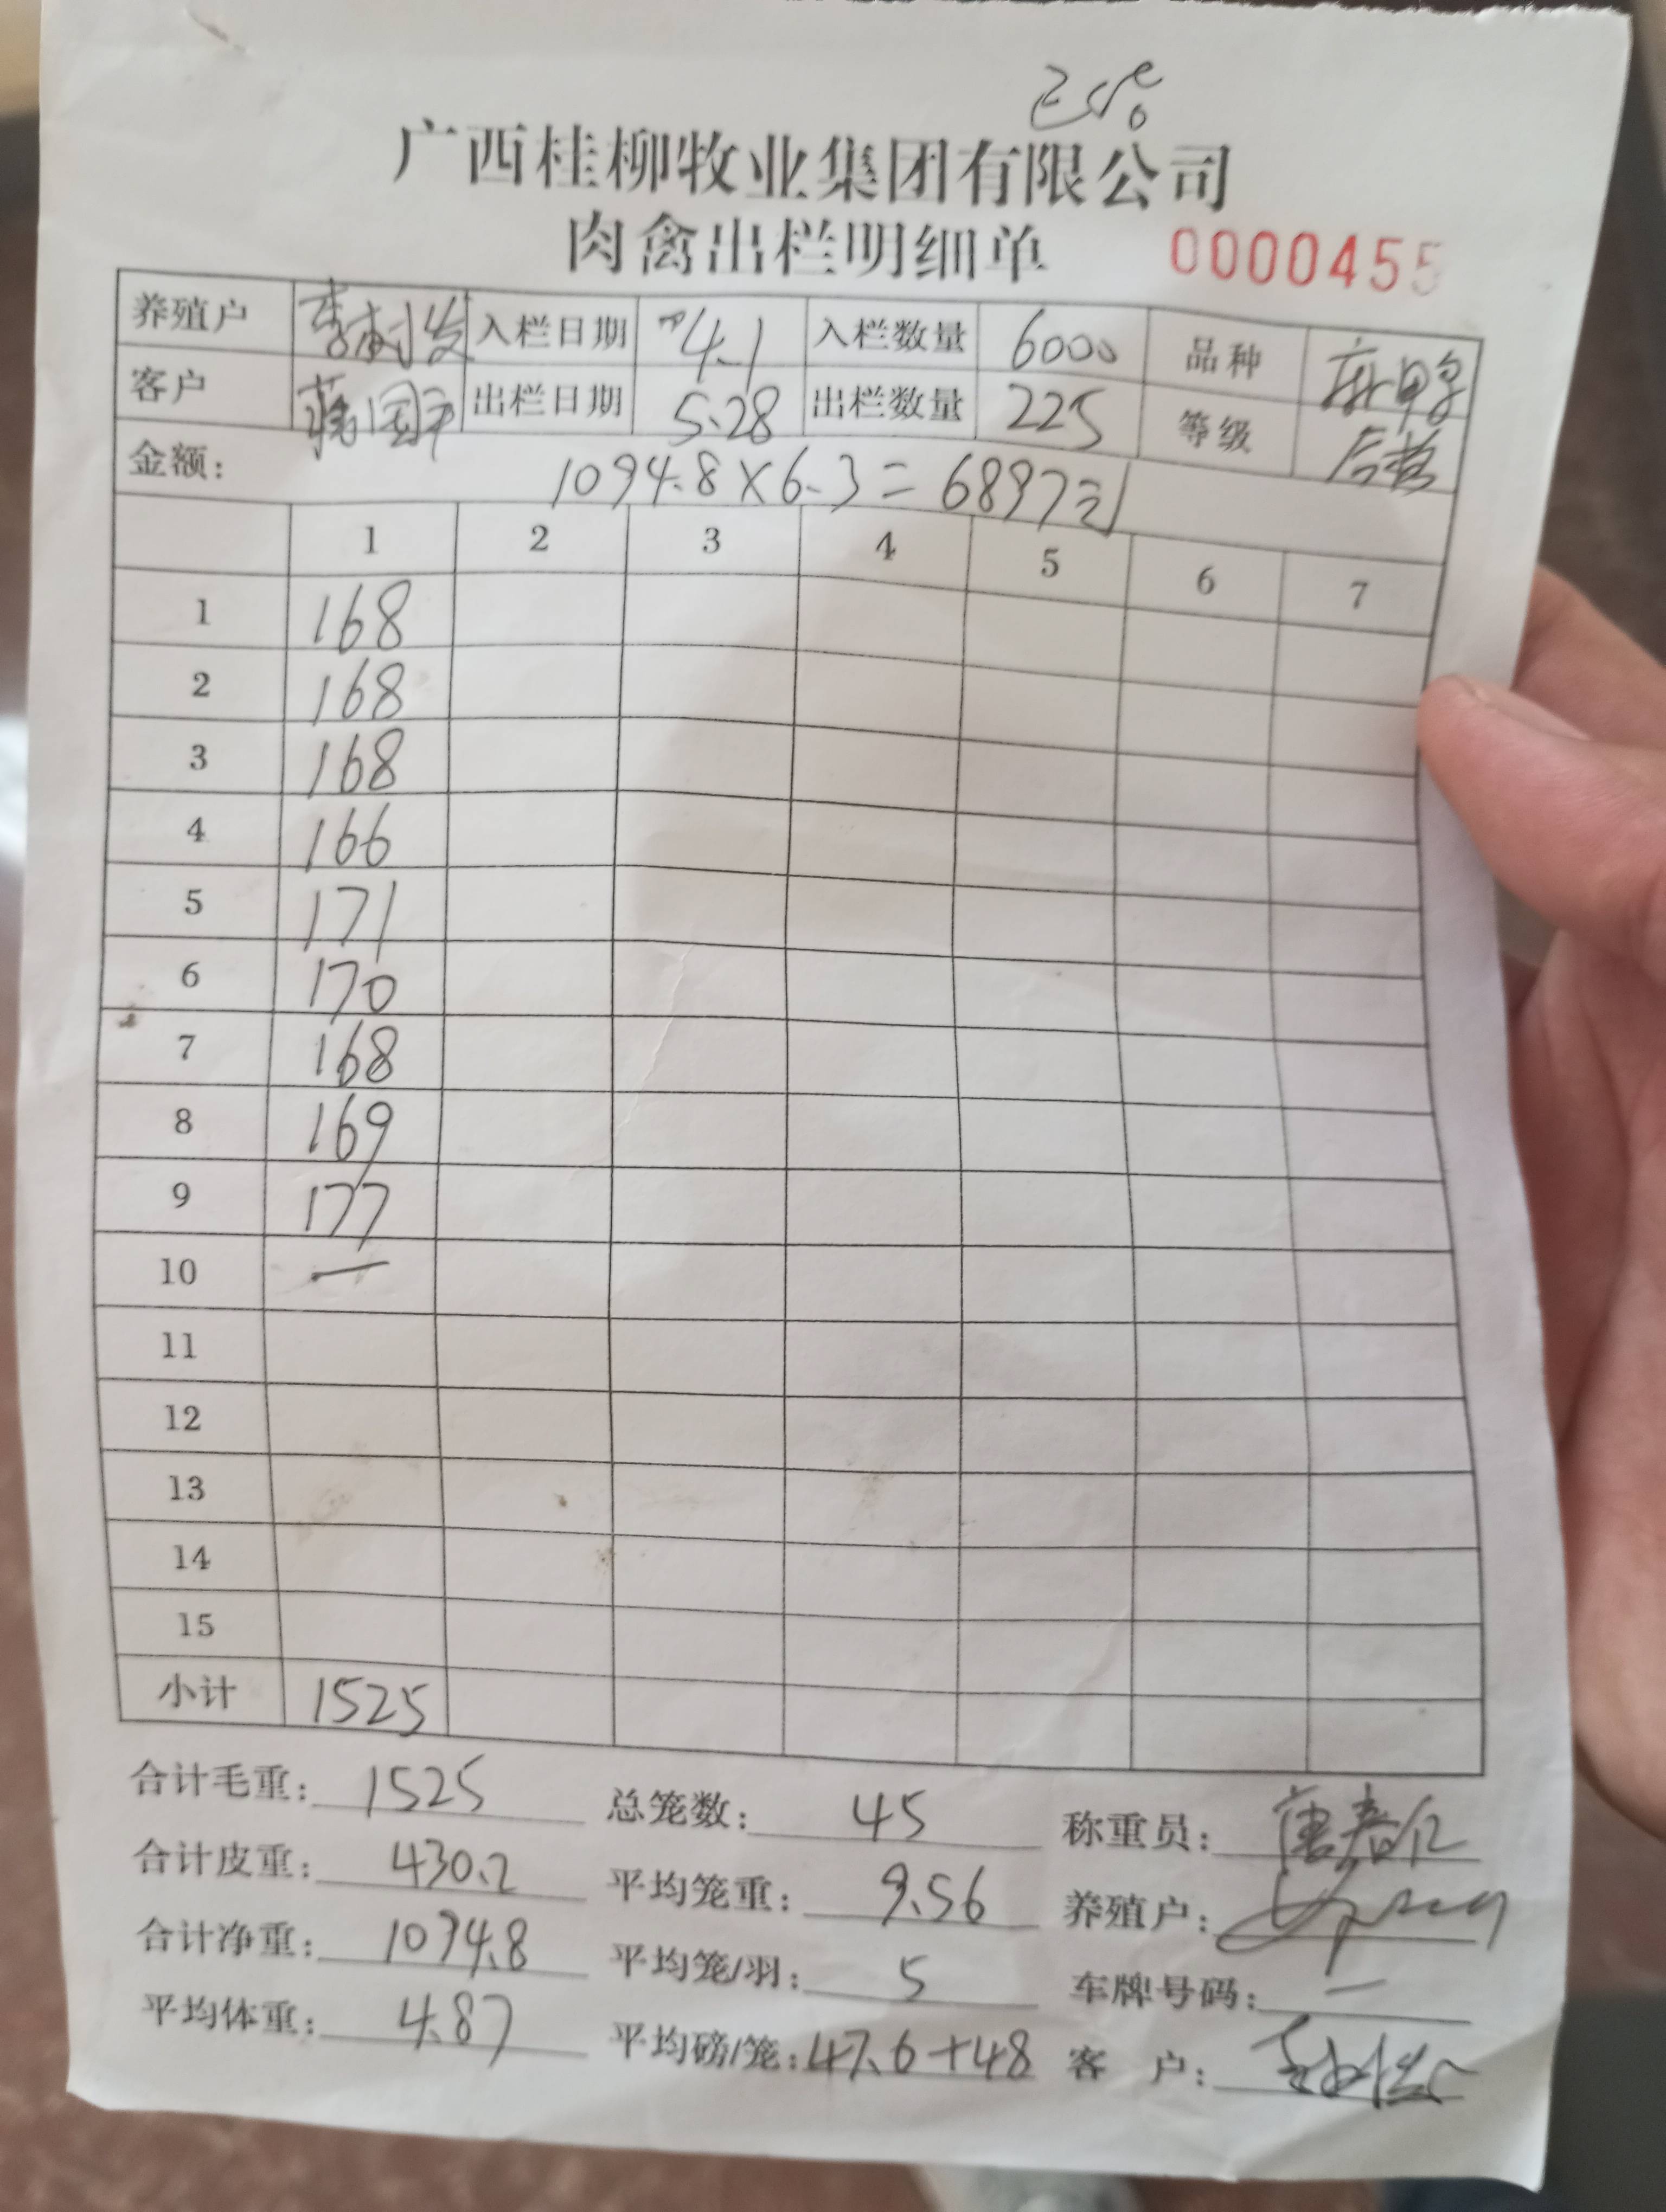 广西桂柳牧业集团有限公司
肉禽出栏明细单 0000455
养殖户 李树发 入栏日期 4.1 入栏数量 6000 品种 麻鸭
客户 蒋国 出栏日期 5.28 出栏数量 225 等级
金额: 1094.8×6.3=6897元
1 2 3 4 5 6 7
1 168
2 168
3 168
4 166
5 171
6 170
7 168
8 169
9 177
10 —
11
12
13
14
15
小计 1525
合计毛重: 1525 总笼数: 45 称重员: 唐春
合计皮重: 430.2 平均笼重: 9.56 养殖户:
合计净重: 1094.8 平均笼/羽: 5 车牌号码: —
平均体重: 4.87 平均磅/笼: 47.6+48 客户: